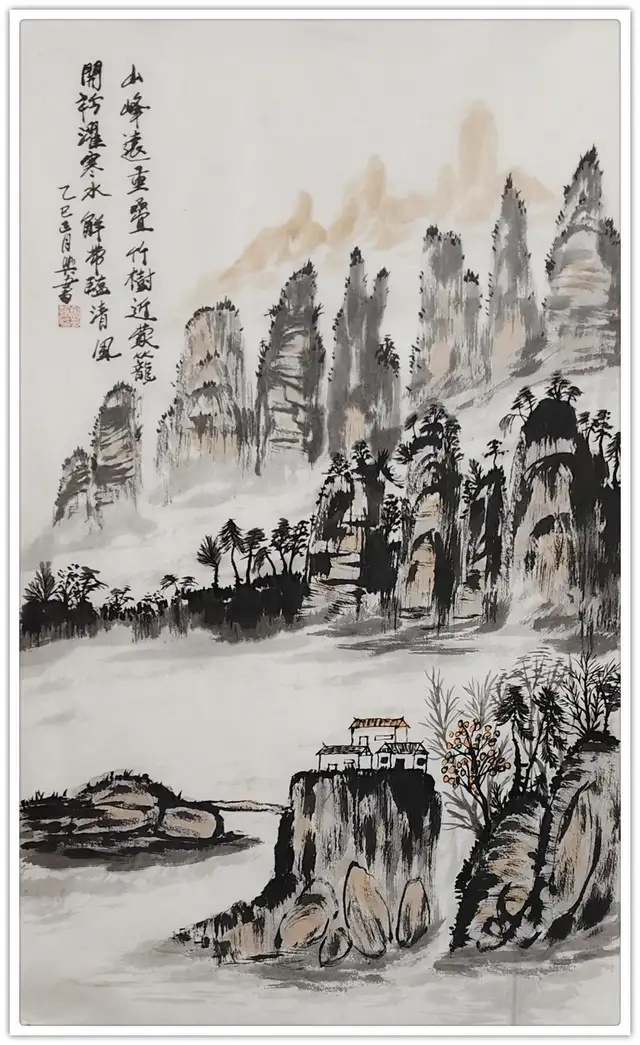 山峰遠重疊竹樹近蒙籠
開衿濯寒水解帶臨清風
乙巳月興書